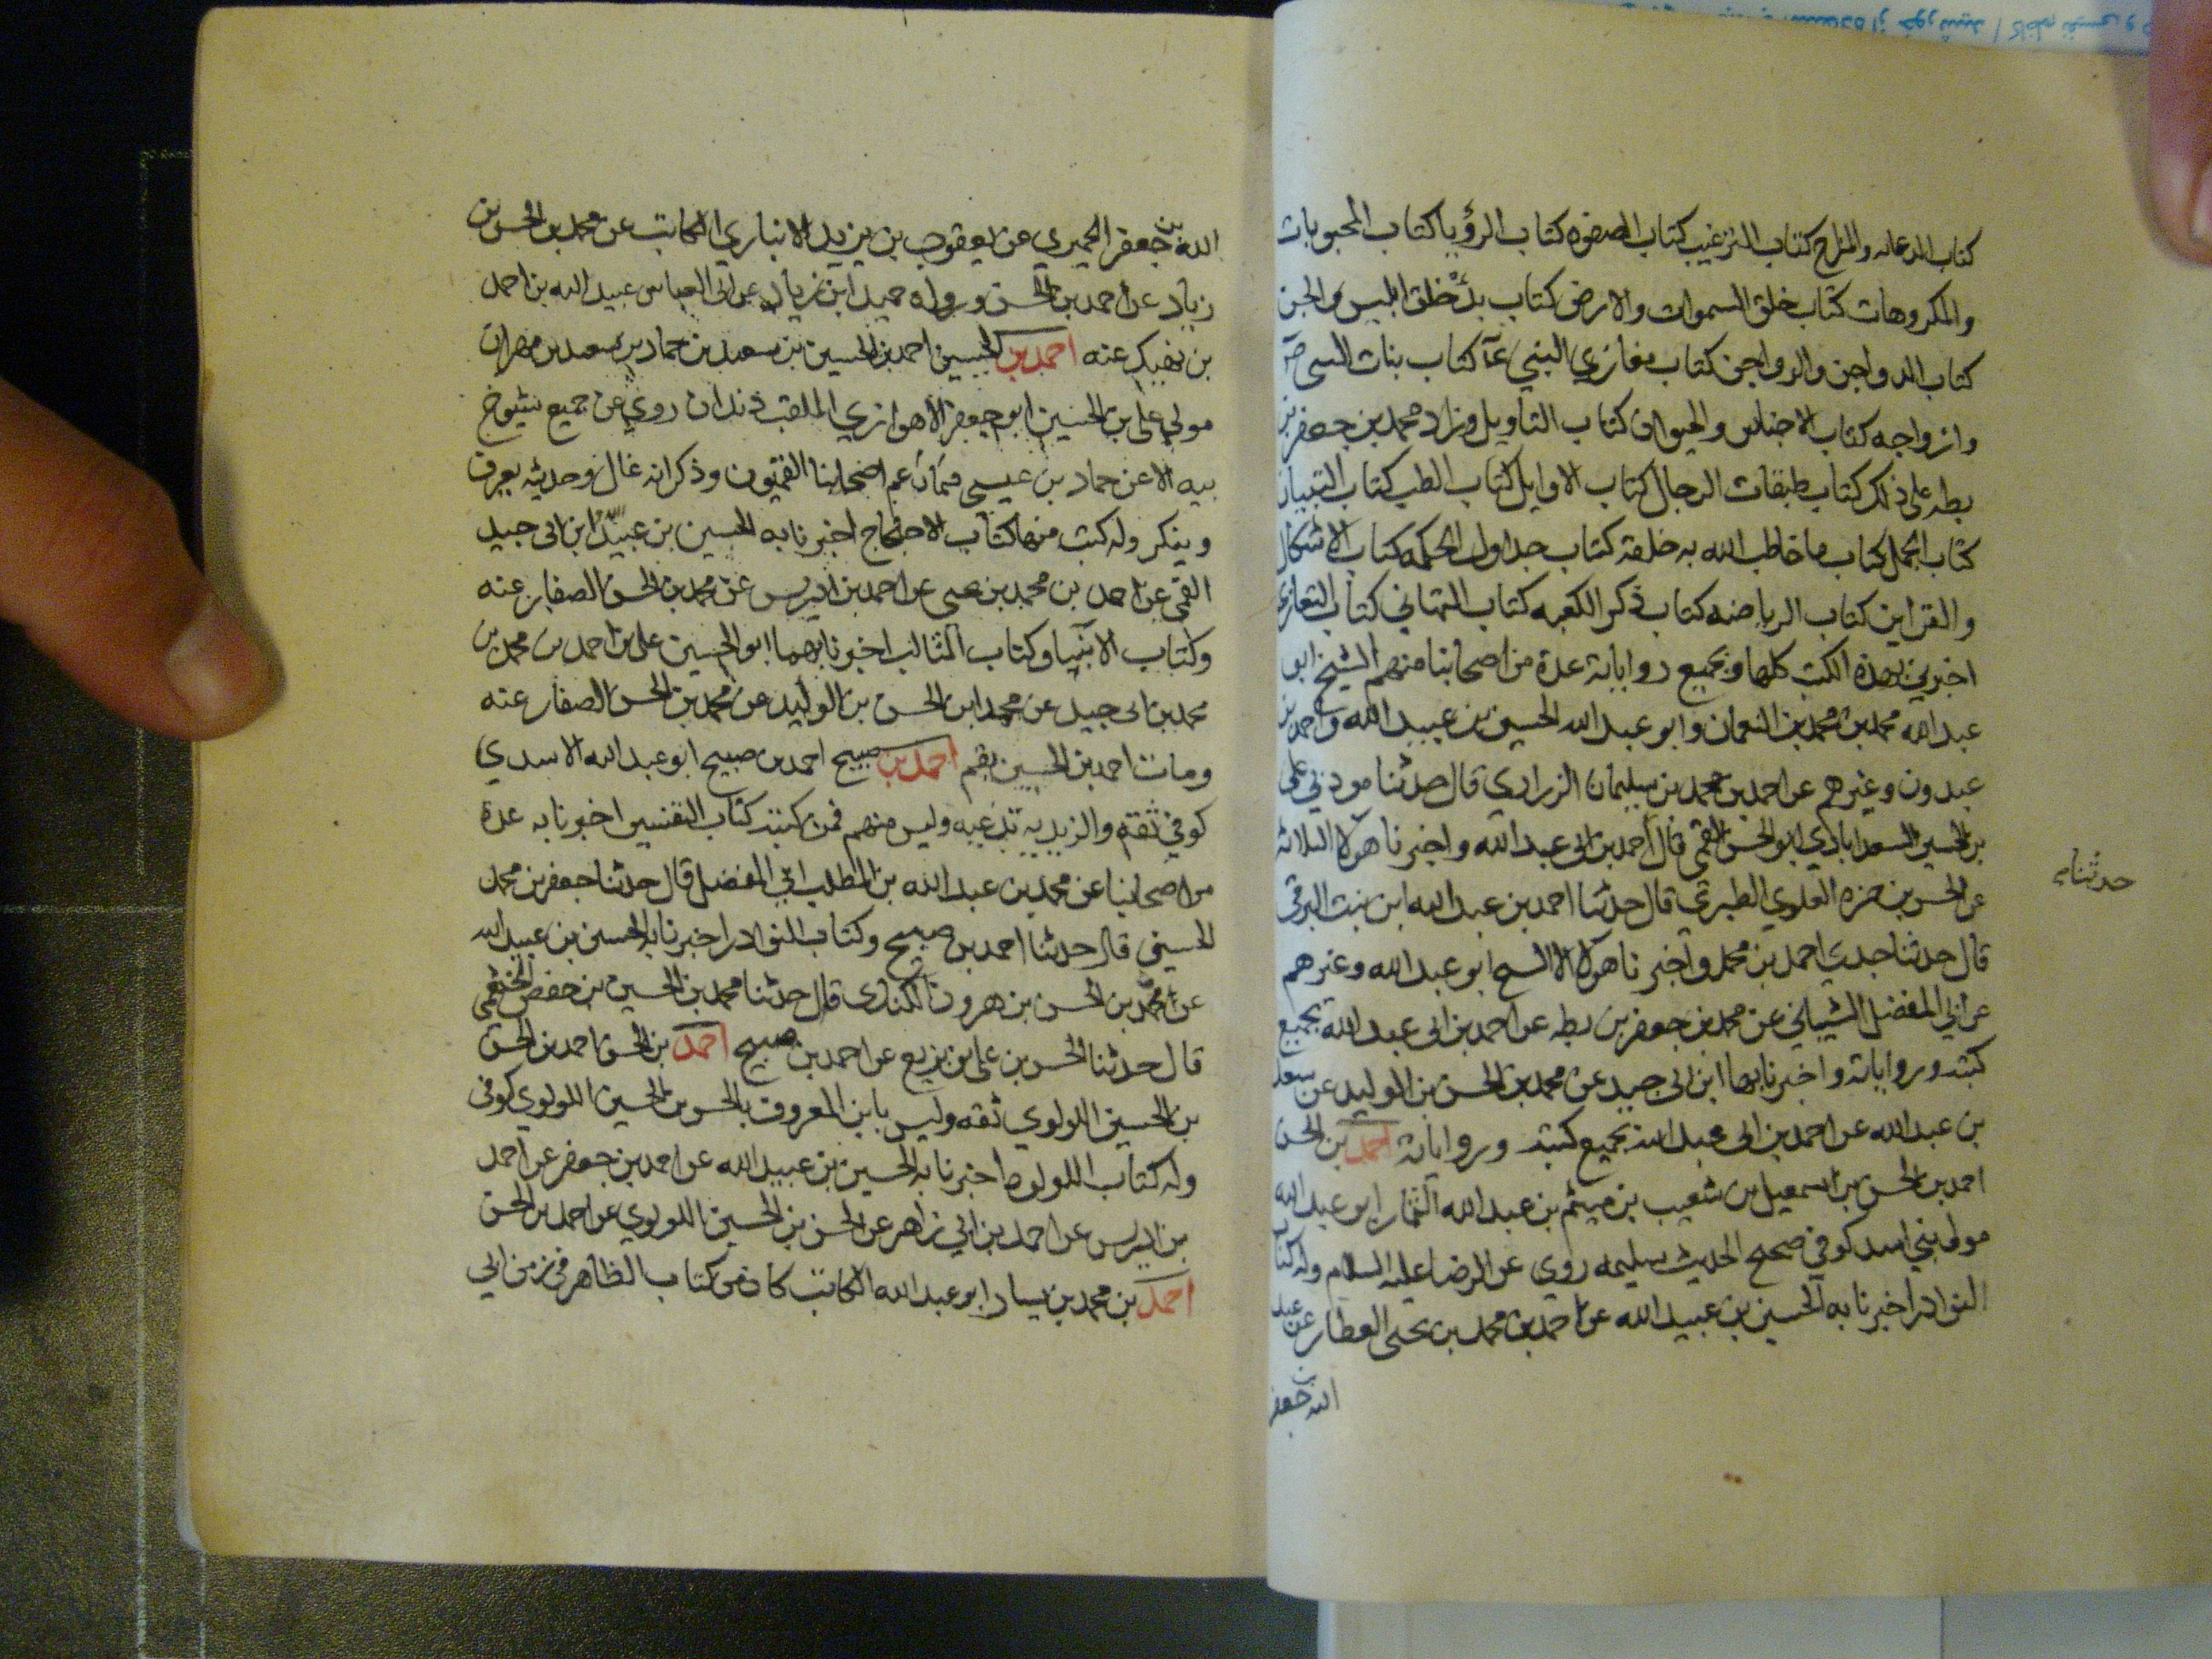 كتاب الدعابه والمزاح كتاب الترغيب كتاب الصفوه كتاب الرؤيا كتاب المحبوبات
والمكروهات كتاب خلق السموات والارض كتاب بدؤ خلق ابليس والجن
كتاب الدواجن والرواجن كتاب مغازي النبي كتاب بنات النبي
وازواجه كتاب الاجناس والحيوان كتاب التاويل وزاد محمد بن جعفر بن
بطه على ذلك كتاب طبقات الرجال كتاب الاوايل كتاب الطب كتاب التبيان
كتاب الجمل كتاب ما خاطب الله به خلقه كتاب جداول الحكمه كتاب الاشكال
والقراين كتاب الرياضه كتاب ذكر الكعبه كتاب التهاني كتاب التعازي
اخبرني بهذه الكتب كلها وبجميع رواياته عدة من اصحابنا منهم الشيخ ابو
عبد الله محمد بن محمد بن النعمان وابو عبد الله الحسين بن عبيد الله واحمد بن
عبدون وغيرهم عن احمد بن محمد بن سليمان الزراري قال حدثنا مودبي علي
بن الحسين السعدابادي ابو الحسن القمي قال احمد بن ابي عبد الله واخبرنا هولاء الثلاثه
حدثناء
عن الحسن بن حمزه العلوي الطبري قال حدثنا احمد بن عبد الله ابن بنت البرقي
قال حدثنا جدي احمد بن محمد واخبرنا هولاء الا الشيخ ابو عبد الله وغيرهم
عن ابي المفضل الشيباني عن محمد بن جعفر بن بطه عن احمد بن ابي عبد الله بجميع
كتبه ورواياته واخبرنا بها ابن ابي جيد عن محمد بن الحسن بن الوليد عن سعد
بن عبد الله عن احمد بن ابي عبد الله بجميع كتبه ورواياته احمد بن الحسن
احمد بن الحسن بن اسمعيل بن شعيب بن ميثم بن عبد الله التمار ابو عبد الله
مولى بني اسد كوفي صحيح الحديث سليمه روي عن الرضا عليه السلام وله كتاب
النوادر اخبرنا به الحسين بن عبيد الله عن احمد بن محمد بن يحيى العطار عن عبد
الله بن جعفر
الله بن جعفر الحميري عن يعقوب بن يزيد الانباري الكاتب عن محمد بن الحسن بن
زياد عن احمد بن الحسن ورواه حميد ابن زياد عن ابي العباس عبيد الله بن احمد
بن نهيك عنه احمد بن الحسين احمد بن الحسين بن سعيد بن حماد بن سعيد بن مهران
مولى علي بن الحسين ابو جعفر الاهوازي الملقب دندان روي عن جميع شيوخ
بيه الا عن حماد بن عيسى فيما زعم اصحابنا القميون وذكر انه غال وحديثه يعرف
وينكر وله كتب منها كتاب الاحتجاج اخبرنا به الحسين بن عبيد الله ابن ابي جيد
القمي عن احمد بن محمد بن يحيى عن احمد بن ادريس عن محمد بن الحسن الصفار عنه
وكتاب الانبيا وكتاب المثالب اخبرنا بهما ابو الحسين علي بن احمد بن محمد بن
محمد بن ابي جيد عن محمد ابن الحسن بن الوليد عن محمد بن الحسن الصفار عنه
ومات احمد بن الحسين بقم احمد بن صبيح احمد بن صبيح ابو عبد الله الاسدي
كوفي ثقه والزيديه تدعيه وليس منهم فمن كتبه كتاب التفسير اخبرنا به عدة
من اصحابنا عن محمد بن عبد الله بن المطلب ابي المفضل قال حدثنا جعفر بن محمد
الحسيني قال حدثنا احمد بن صبيح وكتاب النوادر اخبرنا به الحسين بن عبيد الله
عن محمد بن الحسن بن هرون الكندي قال حدثنا محمد بن الحسين بن حفص الخثعمي
قال حدثنا الحسن بن علي بن بزيع عن احمد بن صبيح احمد بن الحسن احمد بن الحسن
بن الحسين اللولوي ثقه وليس بابن المعروف بالحسن بن الحسين اللولوي كوفي
وله كتاب اللولوه اخبرنا به الحسين بن عبيد الله عن احمد بن جعفر عن احمد
بن ادريس عن احمد بن ابي زاهر عن الحسن بن الحسين اللولوي عن احمد بن الحسن
احمد بن محمد بن سيار ابو عبد الله الكاتب كان من كتاب الظاهر في زمن ابي